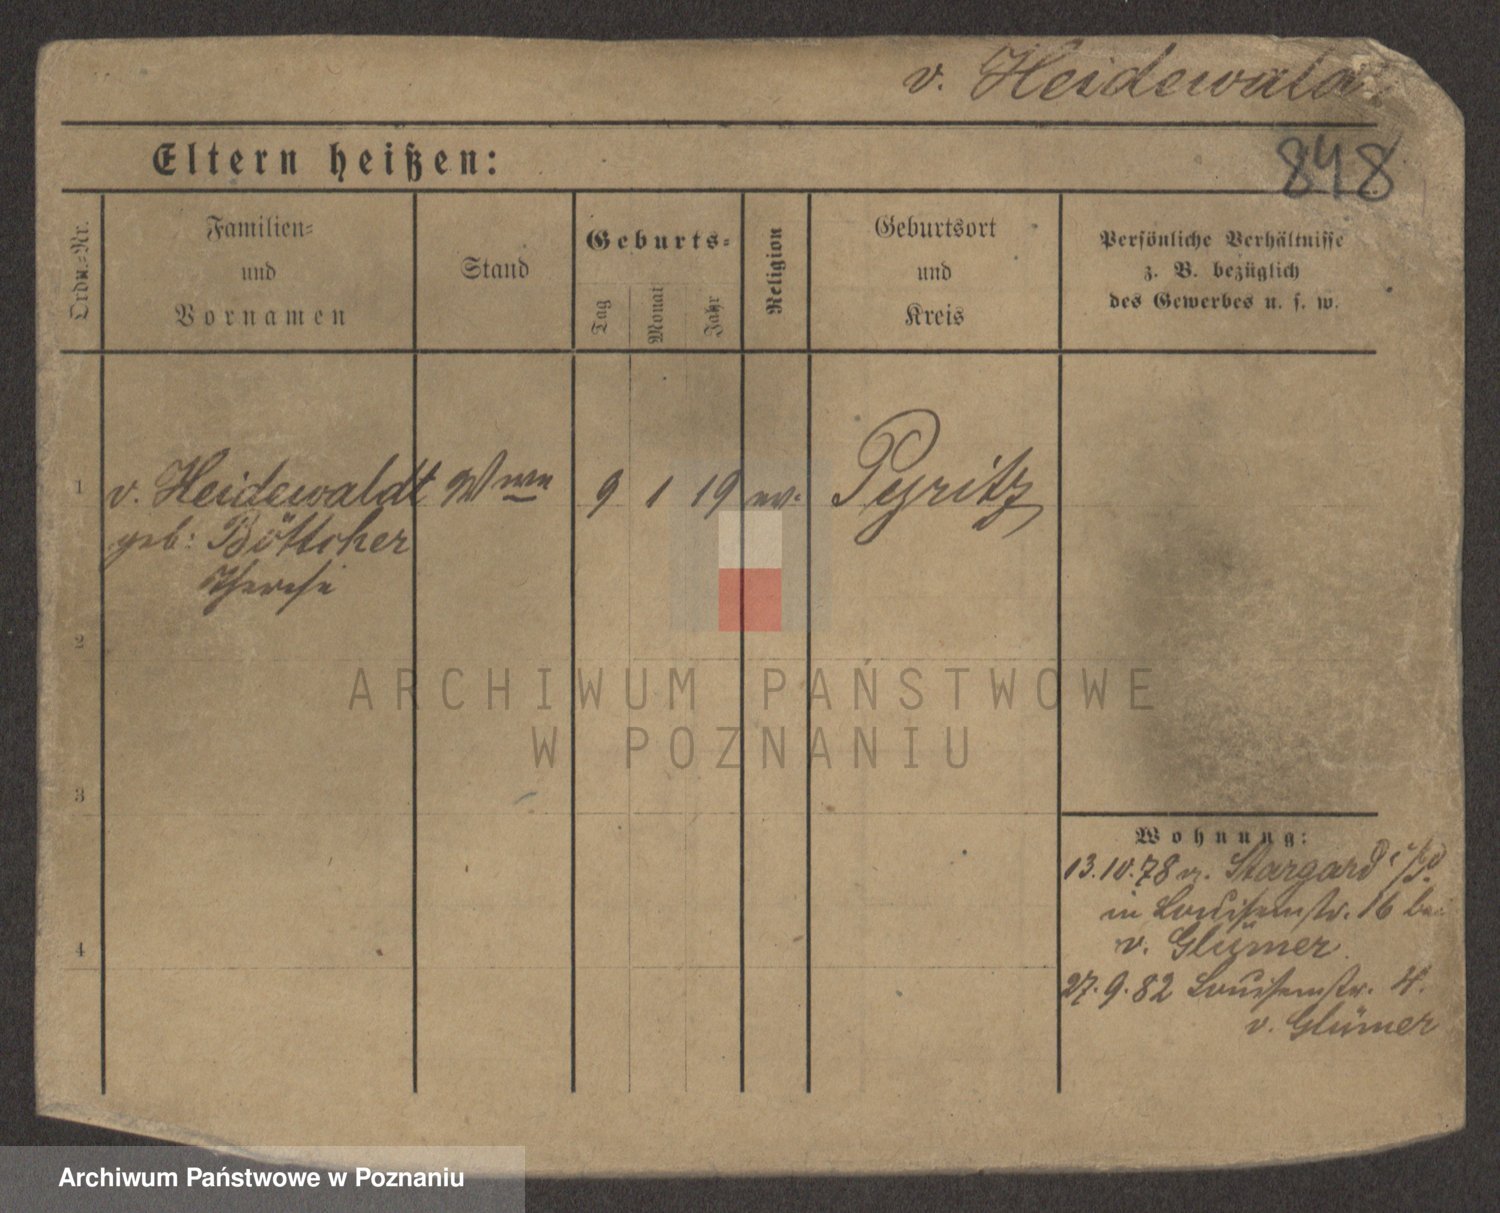 v. Heidewald
848
Eltern heißen:
Ordn.-Nr.
Familien-
und
Vornamen
Stand
Geburts-
Tag
Monat
Jahr
Religion
Geburtsort
und
Kreis
Persönliche Verhältnisse
z. B. bezüglich
des Gewerbes u. s. w.
1
v. Heidewaldt Wwe 9 1 19 ev. Pyritz
geb: Böttcher
Therese
2
3
4
Wohnung:
13.10.78 v. Stargard i/P.
in Louisenstr. 16 bei
v. Glümer.
27.9.82 Louisenstr. 4.
v. Glümer
ARCHIWUM PAŃSTWOWE
W POZNANIU
Archiwum Państwowe w Poznaniu